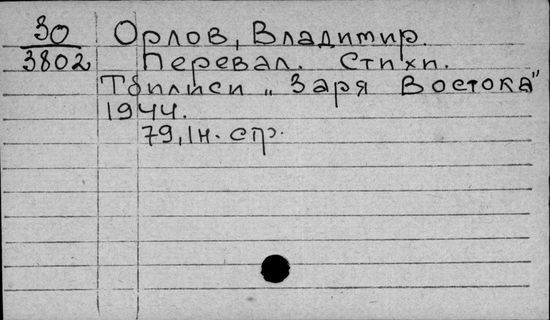 30 Орлов, Владимир.
3802 Перевал. Стихи.
Тбилиси „Заря Востока"
1944.
79, 1н. стр.